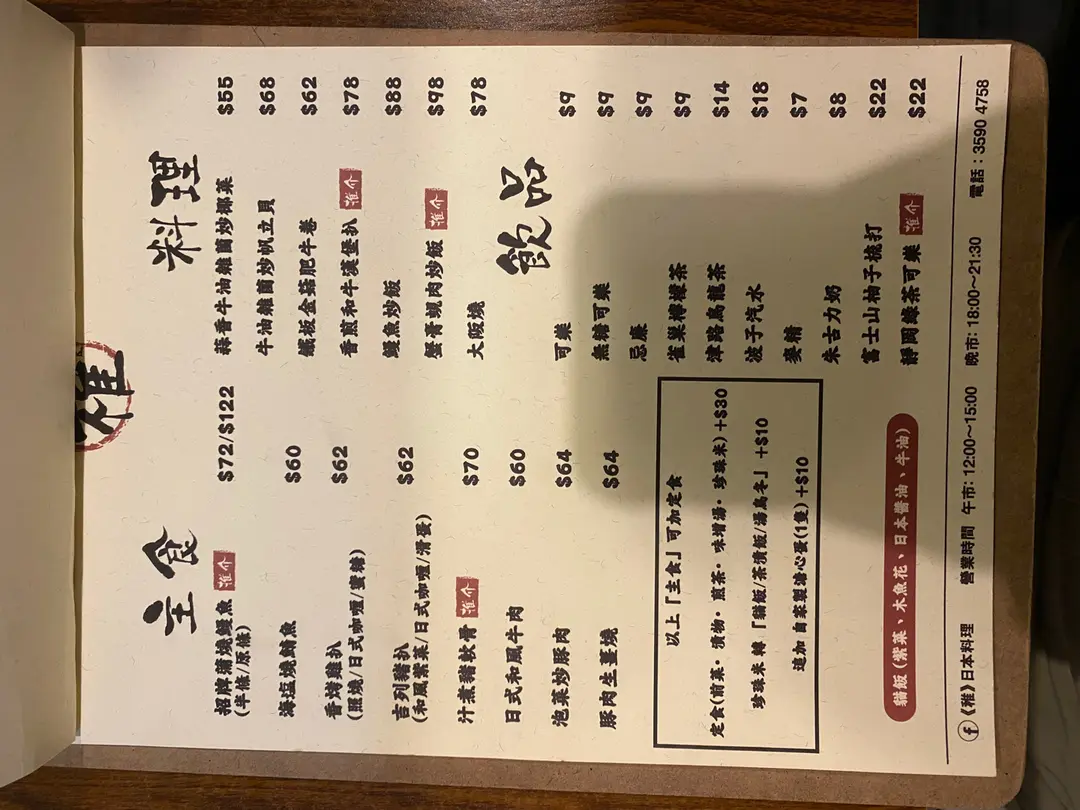 雅
主食
招牌蒲燒鰻魚 推介 $72/$122
(半條/原條)
海塩燒鯖魚 $60
香烤雞扒 $62
(照燒/日式咖喱/蜜糖)
吉列豬扒 $62
(和風紫菜/日式咖喱/滑蛋)
汁煮豬軟骨 推介 $70
日式和風牛肉 $60
泡菜炒豚肉 $64
豚肉生薑燒 $64
以上「主食」可加定食
定食(前菜・漬物・煎茶・味增湯・珍珠米)+$30
珍珠米 轉 「貓飯/茶漬飯/湯烏冬」 +$10
追加 自家製溏心蛋(1隻) +$10
貓飯 (紫菜、木魚花、日本醬油、牛油)
料理
蒜香牛油雜菌炒椰菜 $55
牛油雜菌炒帆立貝 $68
鐵板金菇肥牛卷 $62
香煎和牛漢堡扒 推介 $78
鰻魚炒飯 $88
蟹膏蜆肉炒飯 推介 $98
大阪燒 $78
飲品
可樂 $9
無糖可樂 $9
忌廉 $9
雀巢檸檬茶 $9
津路烏龍茶 $14
波子汽水 $18
麥精 $7
朱古力奶 $8
富士山柚子梳打 $22
靜岡綠茶可樂 推介 $22
f 《雅》日本料理 營業時間 午市: 12:00~15:00 晚市: 18:00~21:30 電話：3590 4758